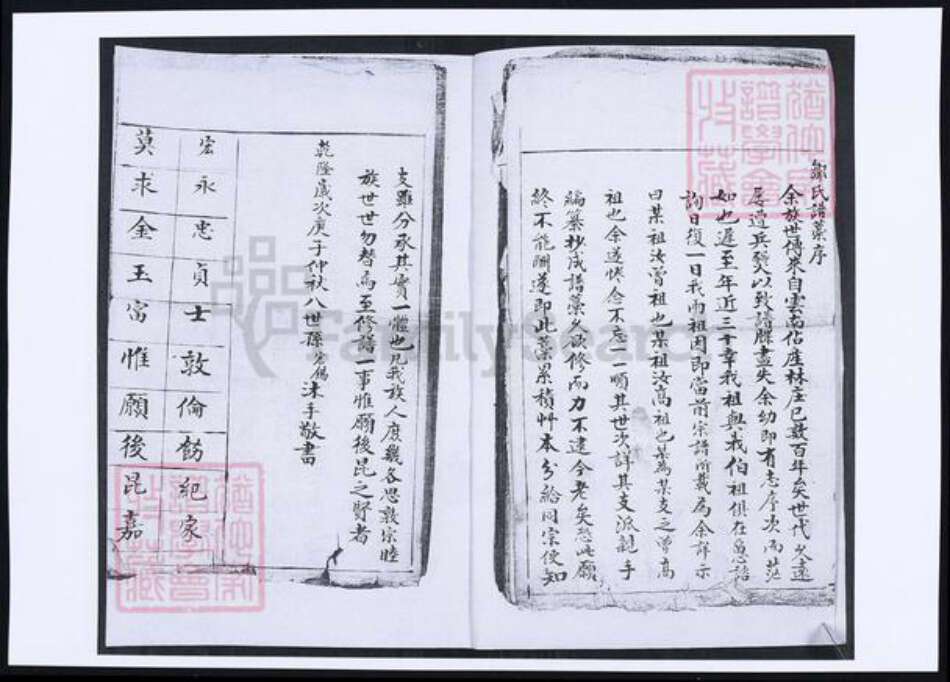 鄒氏譜藁序
余族世傳來自雲南佔産林庄已數百年矣世代久遠
屡遭兵燹以致譜牒盡失余幼即有志序次而茫
如也遲至年近三十幸我祖與我伯祖俱在急詣
詢日復一日我兩祖因即當前宗譜所載為余詳示
曰某祖汝曾祖也某祖汝高祖也某為某支之曾高
祖也余遂怀念不忘一順其世次詳其支派親手
編纂抄成譜藁久欲修而力不逮今老矣恐此願
終不能酬遂即此藁累積艸本分給同宗使知
支雖分承其實一體也凡我族人庶幾各思敦宗睦
族世世勿替焉至修譜一事惟願後昆之賢者
乾隆歲次庚子仲秋八世孫 沐手敬書
宏永忠貞士敦倫飭紀家
莫求金玉富惟願後昆嘉
猶他家譜學會收藏
猶他家譜學會收藏
FamilySearch